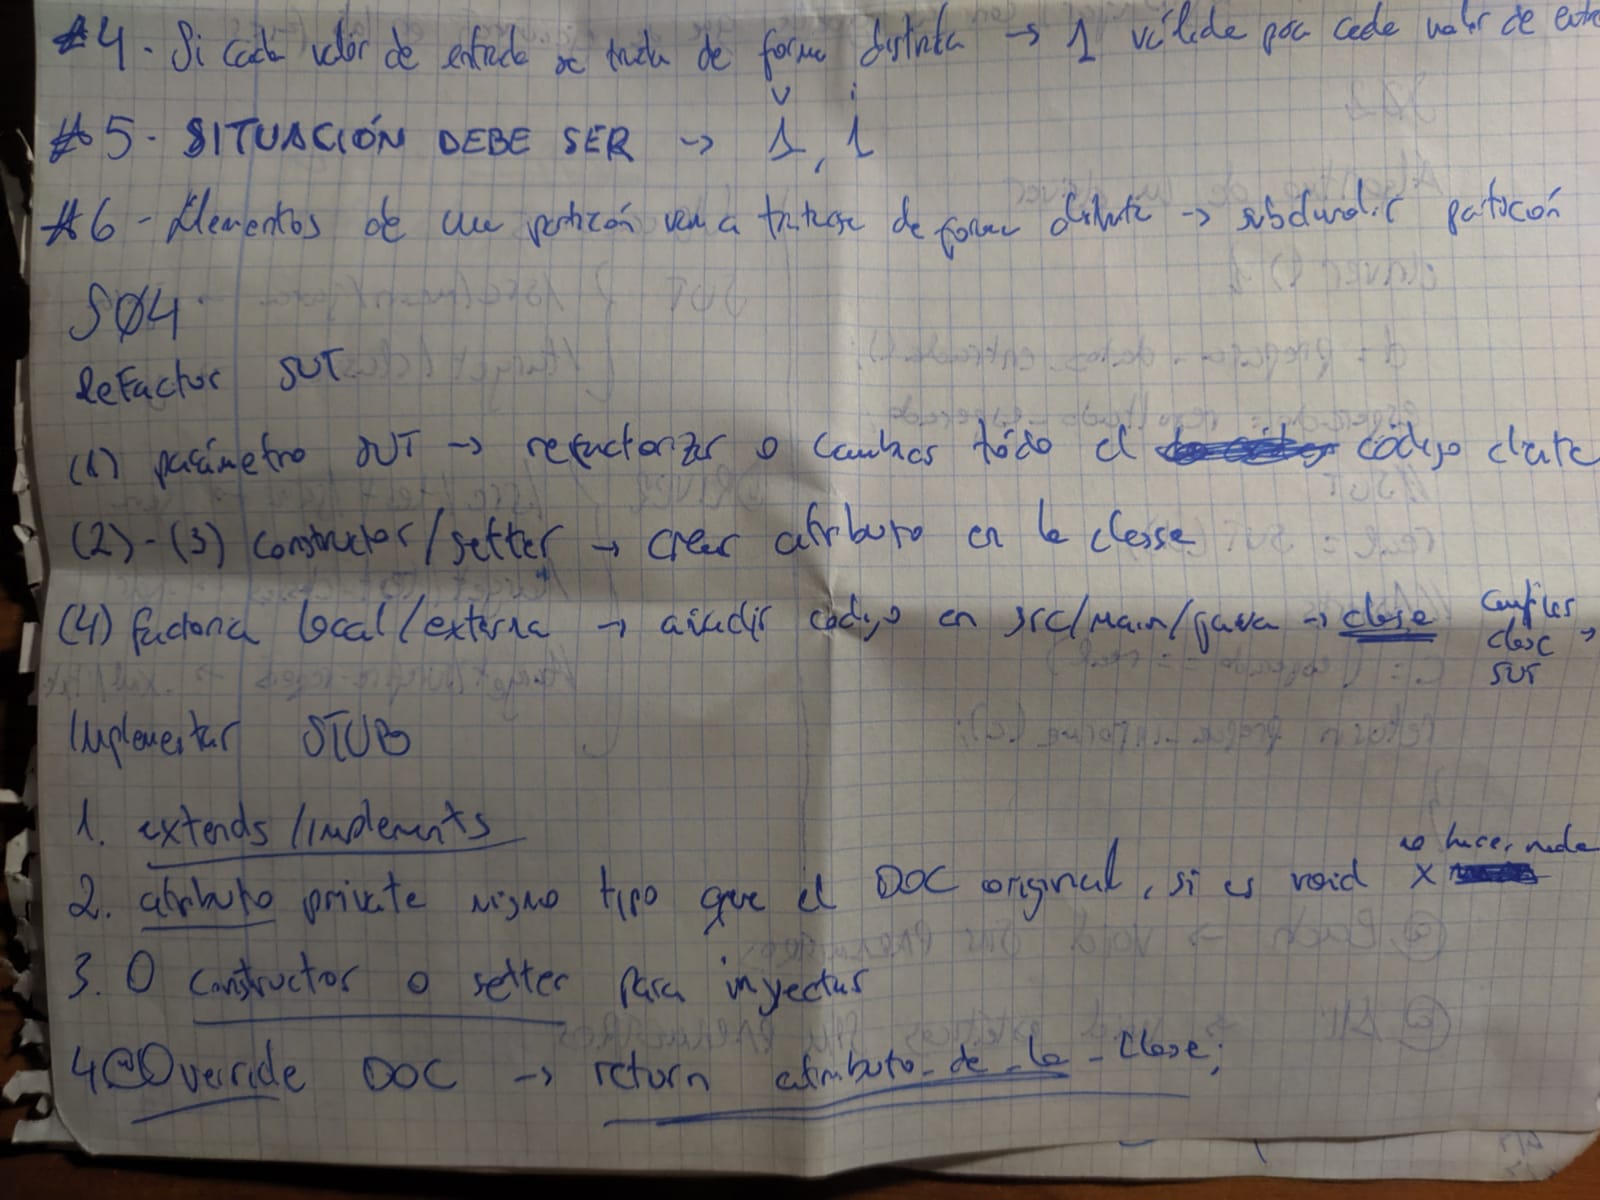 #4 - Si cada valor de entrada se trata de forma distinta → 1 válida por cada valor de
v i
#5 - SITUACIÓN DEBE SER → 1, 1
#6 - Elementos de una partición van a tratarse de forma distinta → subdividir partición
S04
Refactor SUT
(1) parámetro SUT → refactorizar o cambias tódo el código cliente
(2) - (3) constructor/setter → crear atributo en la classe
(4) factoria local/externa → añadir código en src/main/java → clase
clase →
SUT
Implementar STUB
1. extends/implements
no hacer nada
2. atributo private mismo tipo que el DOC original, si es void x
3. O constructor o setter para inyectar
4 @Override DOC → return atributo_de_la_clase;